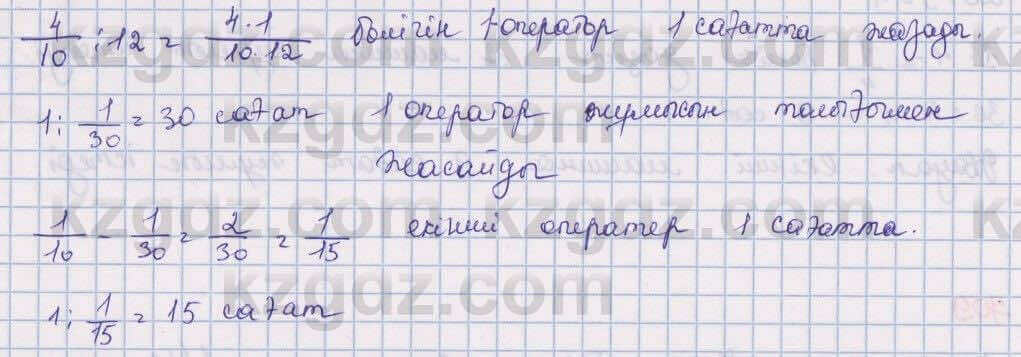 4/10 : 12 = 4·1/10·12 бөлігін 1-оператор 1 сағатта жазады.
1 : 1/30 = 30 сағат 1 оператор жұмысын толығымен
жасайды
1/10 - 1/30 = 2/30 = 1/15 екінші оператер 1 сағатта.
1 : 1/15 = 15 сағат
kzgdz.com